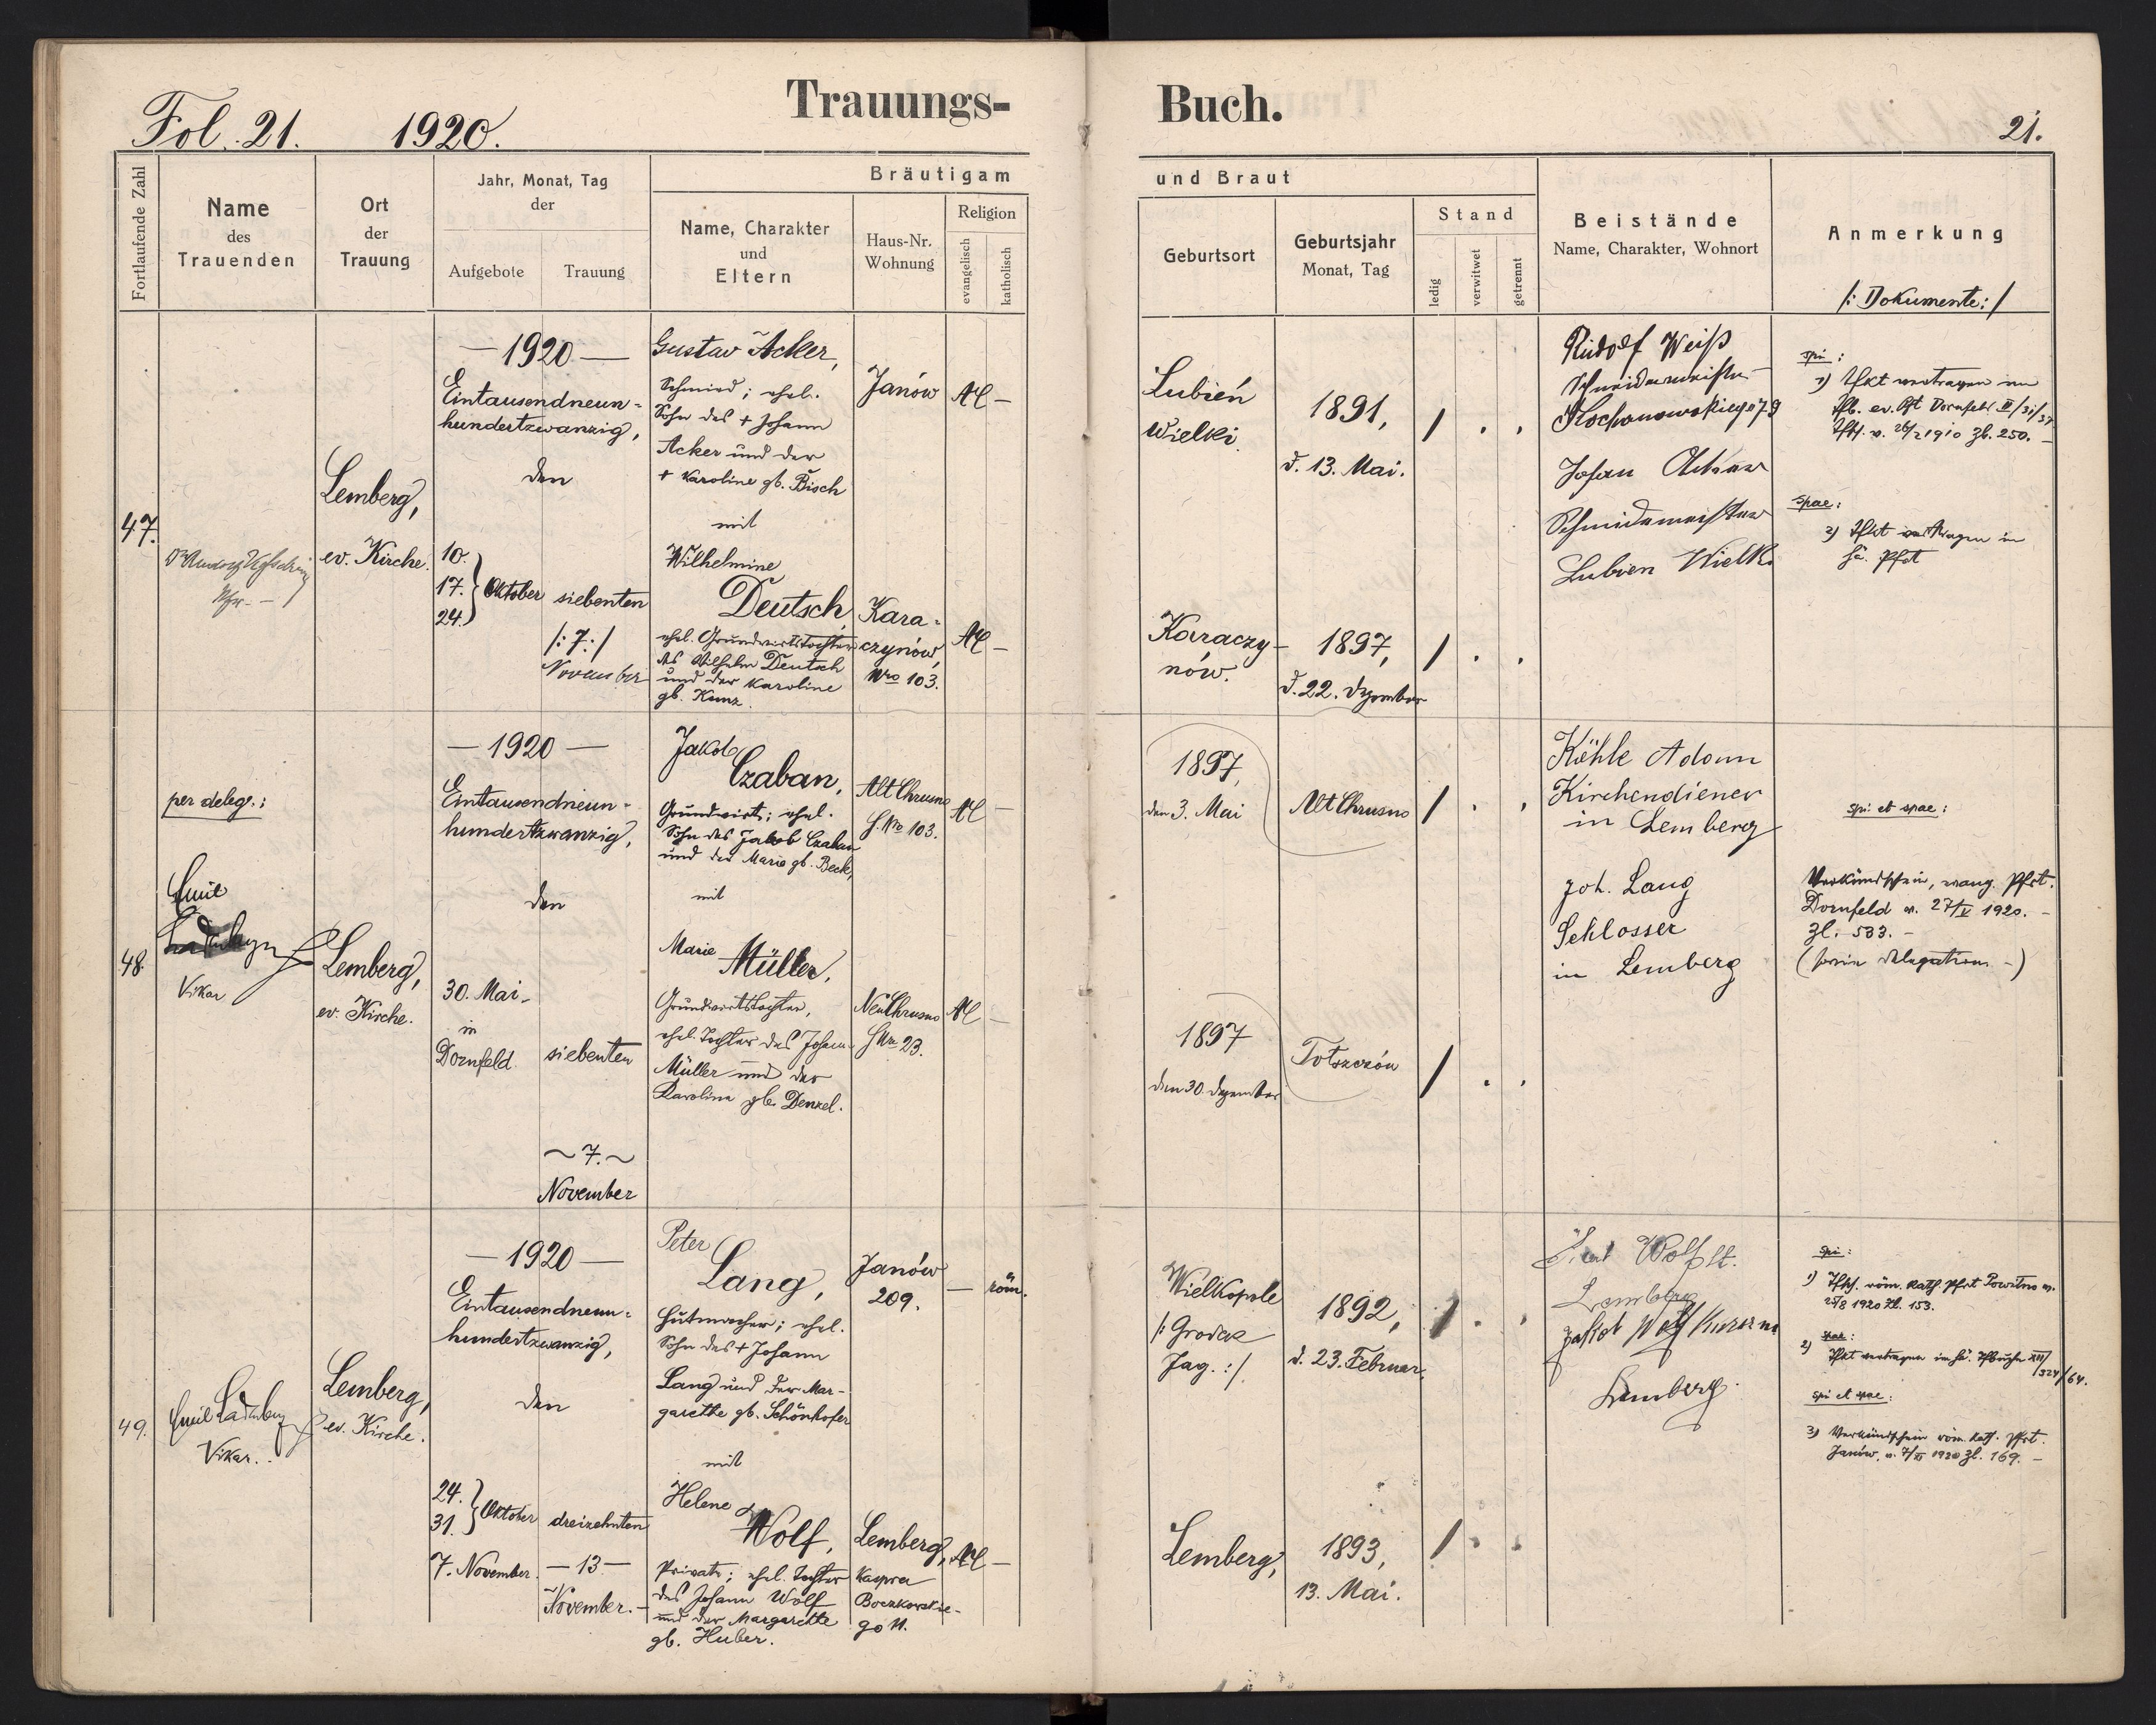 Fol. 21. 1920.
Trauungs-
Buch.
21.
Fortlaufende Zahl
Name
des
Trauenden
Ort
der
Trauung
Jahr, Monat, Tag
der
Aufgebote
Trauung
Bräutigam
Name, Charakter
und
Eltern
Haus-Nr.
Wohnung
Religion
evangelisch
katholisch
und Braut
Geburtsort
Geburtsjahr
Monat, Tag
Stand
ledig
verwitwet
getrennt
Beistände
Name, Charakter, Wohnort
Anmerkung
/: Dokumente: /
47.
Lemberg,
ev. Kirche.
— 1920 —
Eintausendneun-
hundertzwanzig,
den
10.
17. } Oktober
24.
siebenten
/: 7. :/
November
Gustav Acker,
Schmied; ehel.
Sohn des + Johann
Acker und der
+ Karoline gb. Bisch
mit
Wilhelmine
Deutsch,
ehel. Grundwirtstochter
des Wilhelm Deutsch
und der Karoline
gb. Kunz.
Janów
AC —
Kara-
czynów,
Nro 103.
AC —
Lubień
Wielki
1891,
d. 13. Mai.
/ . .
Karaczy-
nów.
1897,
d. 22. Dezember
/ . .
Rudolf Weiß
Schneidermeister
Kochanowskiego 79
Johann
Schmidemeister
Lubien Wielki
spi:
1)
ev. Dornfeld
1910 Zl. 250. —
spae:
2)
Pfrt
48.
per deleg.:
Emil
Vikar
Lemberg,
ev. Kirche.
— 1920 —
Eintausendneun-
hundertzwanzig,
den
30. Mai
in
Dornfeld
siebenten
~ 7. ~
November
Jakob
Czaban,
Grundwirt; ehel.
Sohn des Jakob Czaban
und der Marie gb. Beck,
mit
Marie
Müller,
Grundwirtstochter,
ehel. Tochter des Johann
Müller und der
Karoline gb. Denzel.
Alt Chrusno
H. Nro 103.
AC —
Neu Chrusno
H Nro 23.
AC —
1897,
den 3. Mai
Alt Chrusno
/ . .
1897
den 30. Dezember
Tołszczów
/ . .
Köhle Adam
Kirchendiener
in Lemberg
Joh. Lang
Schlosser
in Lemberg
spi et spae:
Verkündschein, evang. Pfrt.
Dornfeld v. 27/V 1920. —
Zl. 533. —
49.
Emil Ladenberger
Vikar.
Lemberg,
ev. Kirche.
— 1920 —
Eintausendneun-
hundertzwanzig,
den
24.
31. } Oktober
7. November.
dreizehnten
— 13 —
November. —
Peter
Lang,
Hutmacher; ehel.
Sohn des + Johann
Lang und der Mar-
garethe gb. Schönhofer
mit
Helene
Wolf,
Private; ehel. Tochter
des Johann Wolf
und der Margarethe
gb. Huber.
Janów
209.
— röm.
Lemberg,
Kaspra
Boczkowskie-
go 11.
AC —
Wielkopole
/: Gródek
Jag. :/.
1892,
d. 23. Februar
/ . .
Lemberg,
1893,
13. Mai.
/ . .
Wolf
Lemberg
Jakob Wolf
Lemberg.
spi:
1) röm. kath. Pfrt
1920 Zl. 153.
spae:
2)
spi et spae:
3) Verkündschein röm. kath. Pfrt.
Janów, v. 7/XI 1920 Zl. 169. —